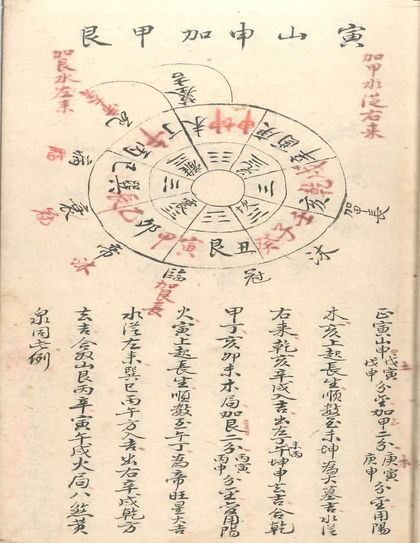 寅山申加甲艮
加甲水從右來
加艮水左來
墓吉
死
病
衰
帝
臨
冠
沐
長
加甲
加艮長
丁未坤申庚酉辛戌乾亥壬子癸丑艮寅甲卯乙辰巽巳丙午
正寅山申戊寅戊申分金加甲二分庚寅庚申分金用陽
木亥上起長生順數至未坤為大墓吉水從
右來乾亥辛戌入吉出左丁午坤申去吉合乾
甲丁亥卯未木局加艮二分丙寅丙申分金用陽
火寅上起長生順數至午丁為帝旺星大吉
水從左來巽巳丙午方入吉出右辛戌乾方
去吉合取山艮丙辛寅午戌火局八煞黃
泉同例